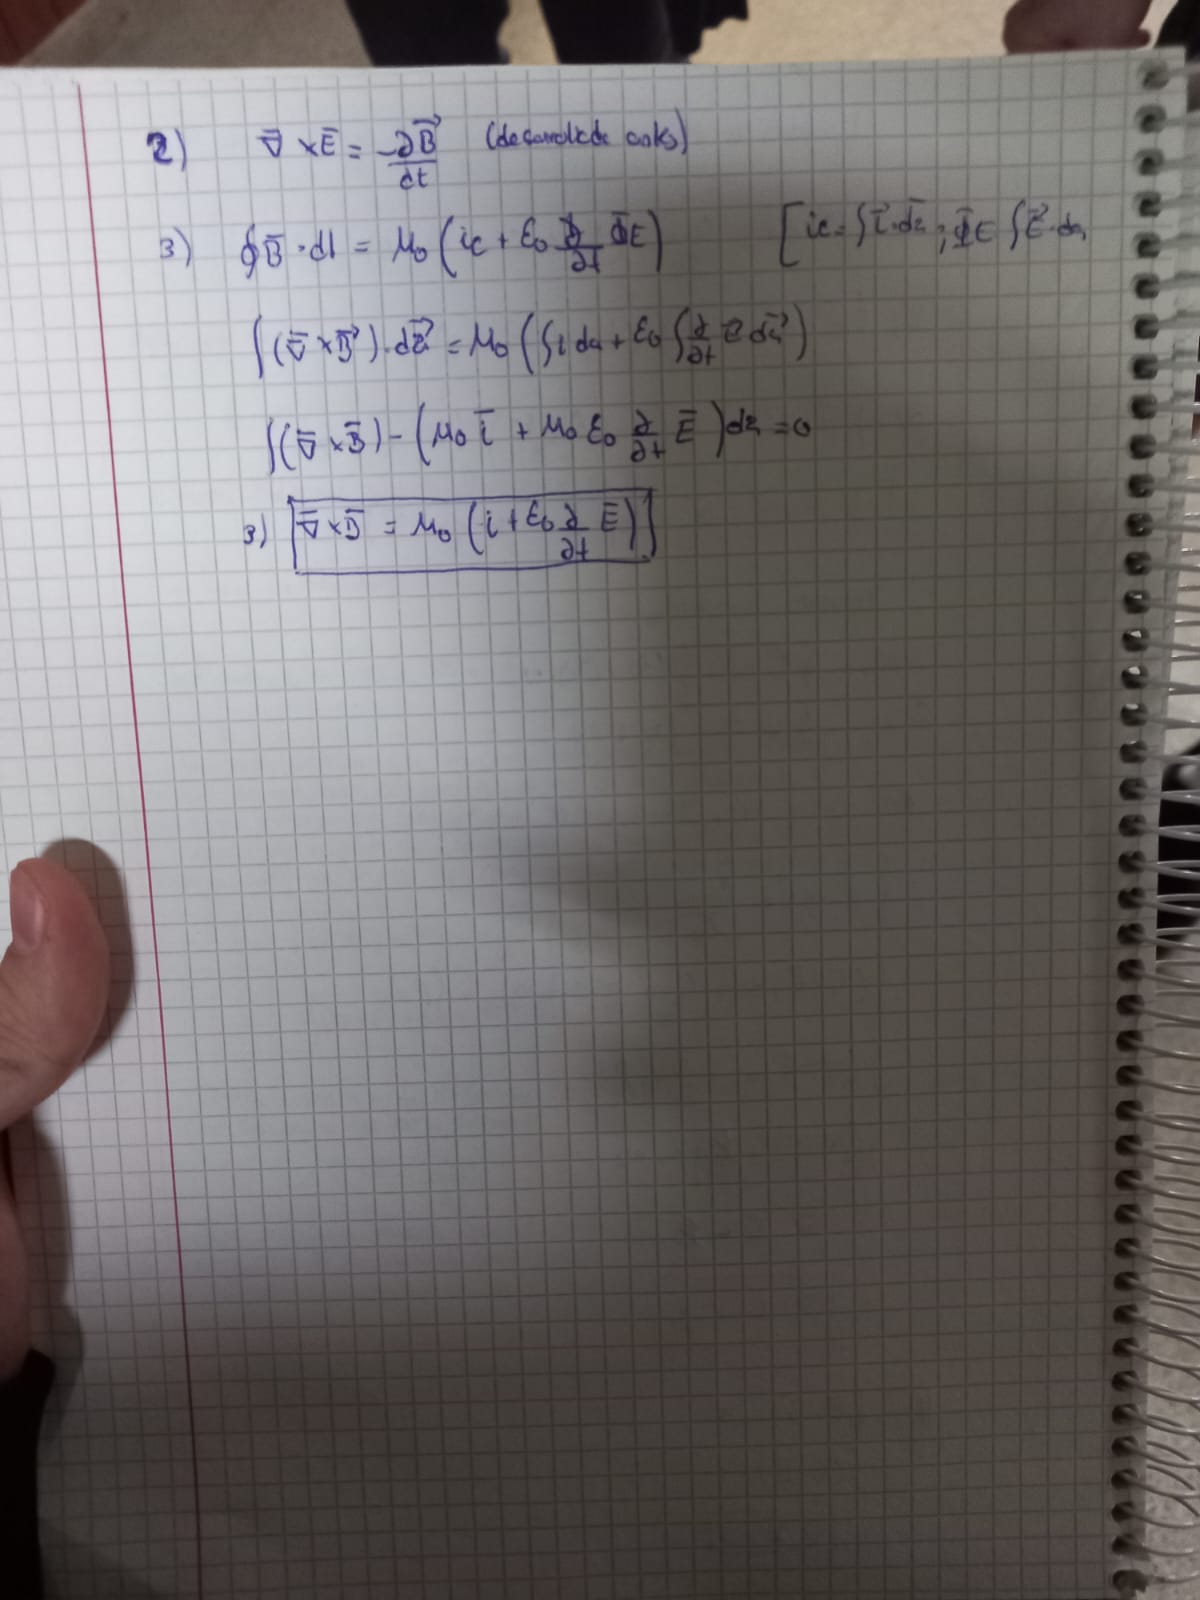 2) ∇̅ ×E̅ = -∂B⃗/dt (desarrollado antes)
3) ∮B̅·dl = μ₀(ic + ε₀ ∂/∂t ΦE) [ic = ∫i⃗·da̅ ; ΦE ∫E⃗·da
∫(∇̅ ×B⃗)·da⃗ = μ₀(∫i da + ε₀ ∫∂/∂t E̅ da⃗)
∫(∇̅ ×B̅) - (μ₀ i̅ + μ₀ ε₀ ∂/∂t E̅) da = 0
3) [∇̅ ×B̅ = μ₀ (i + ε₀ ∂/∂t E̅)]